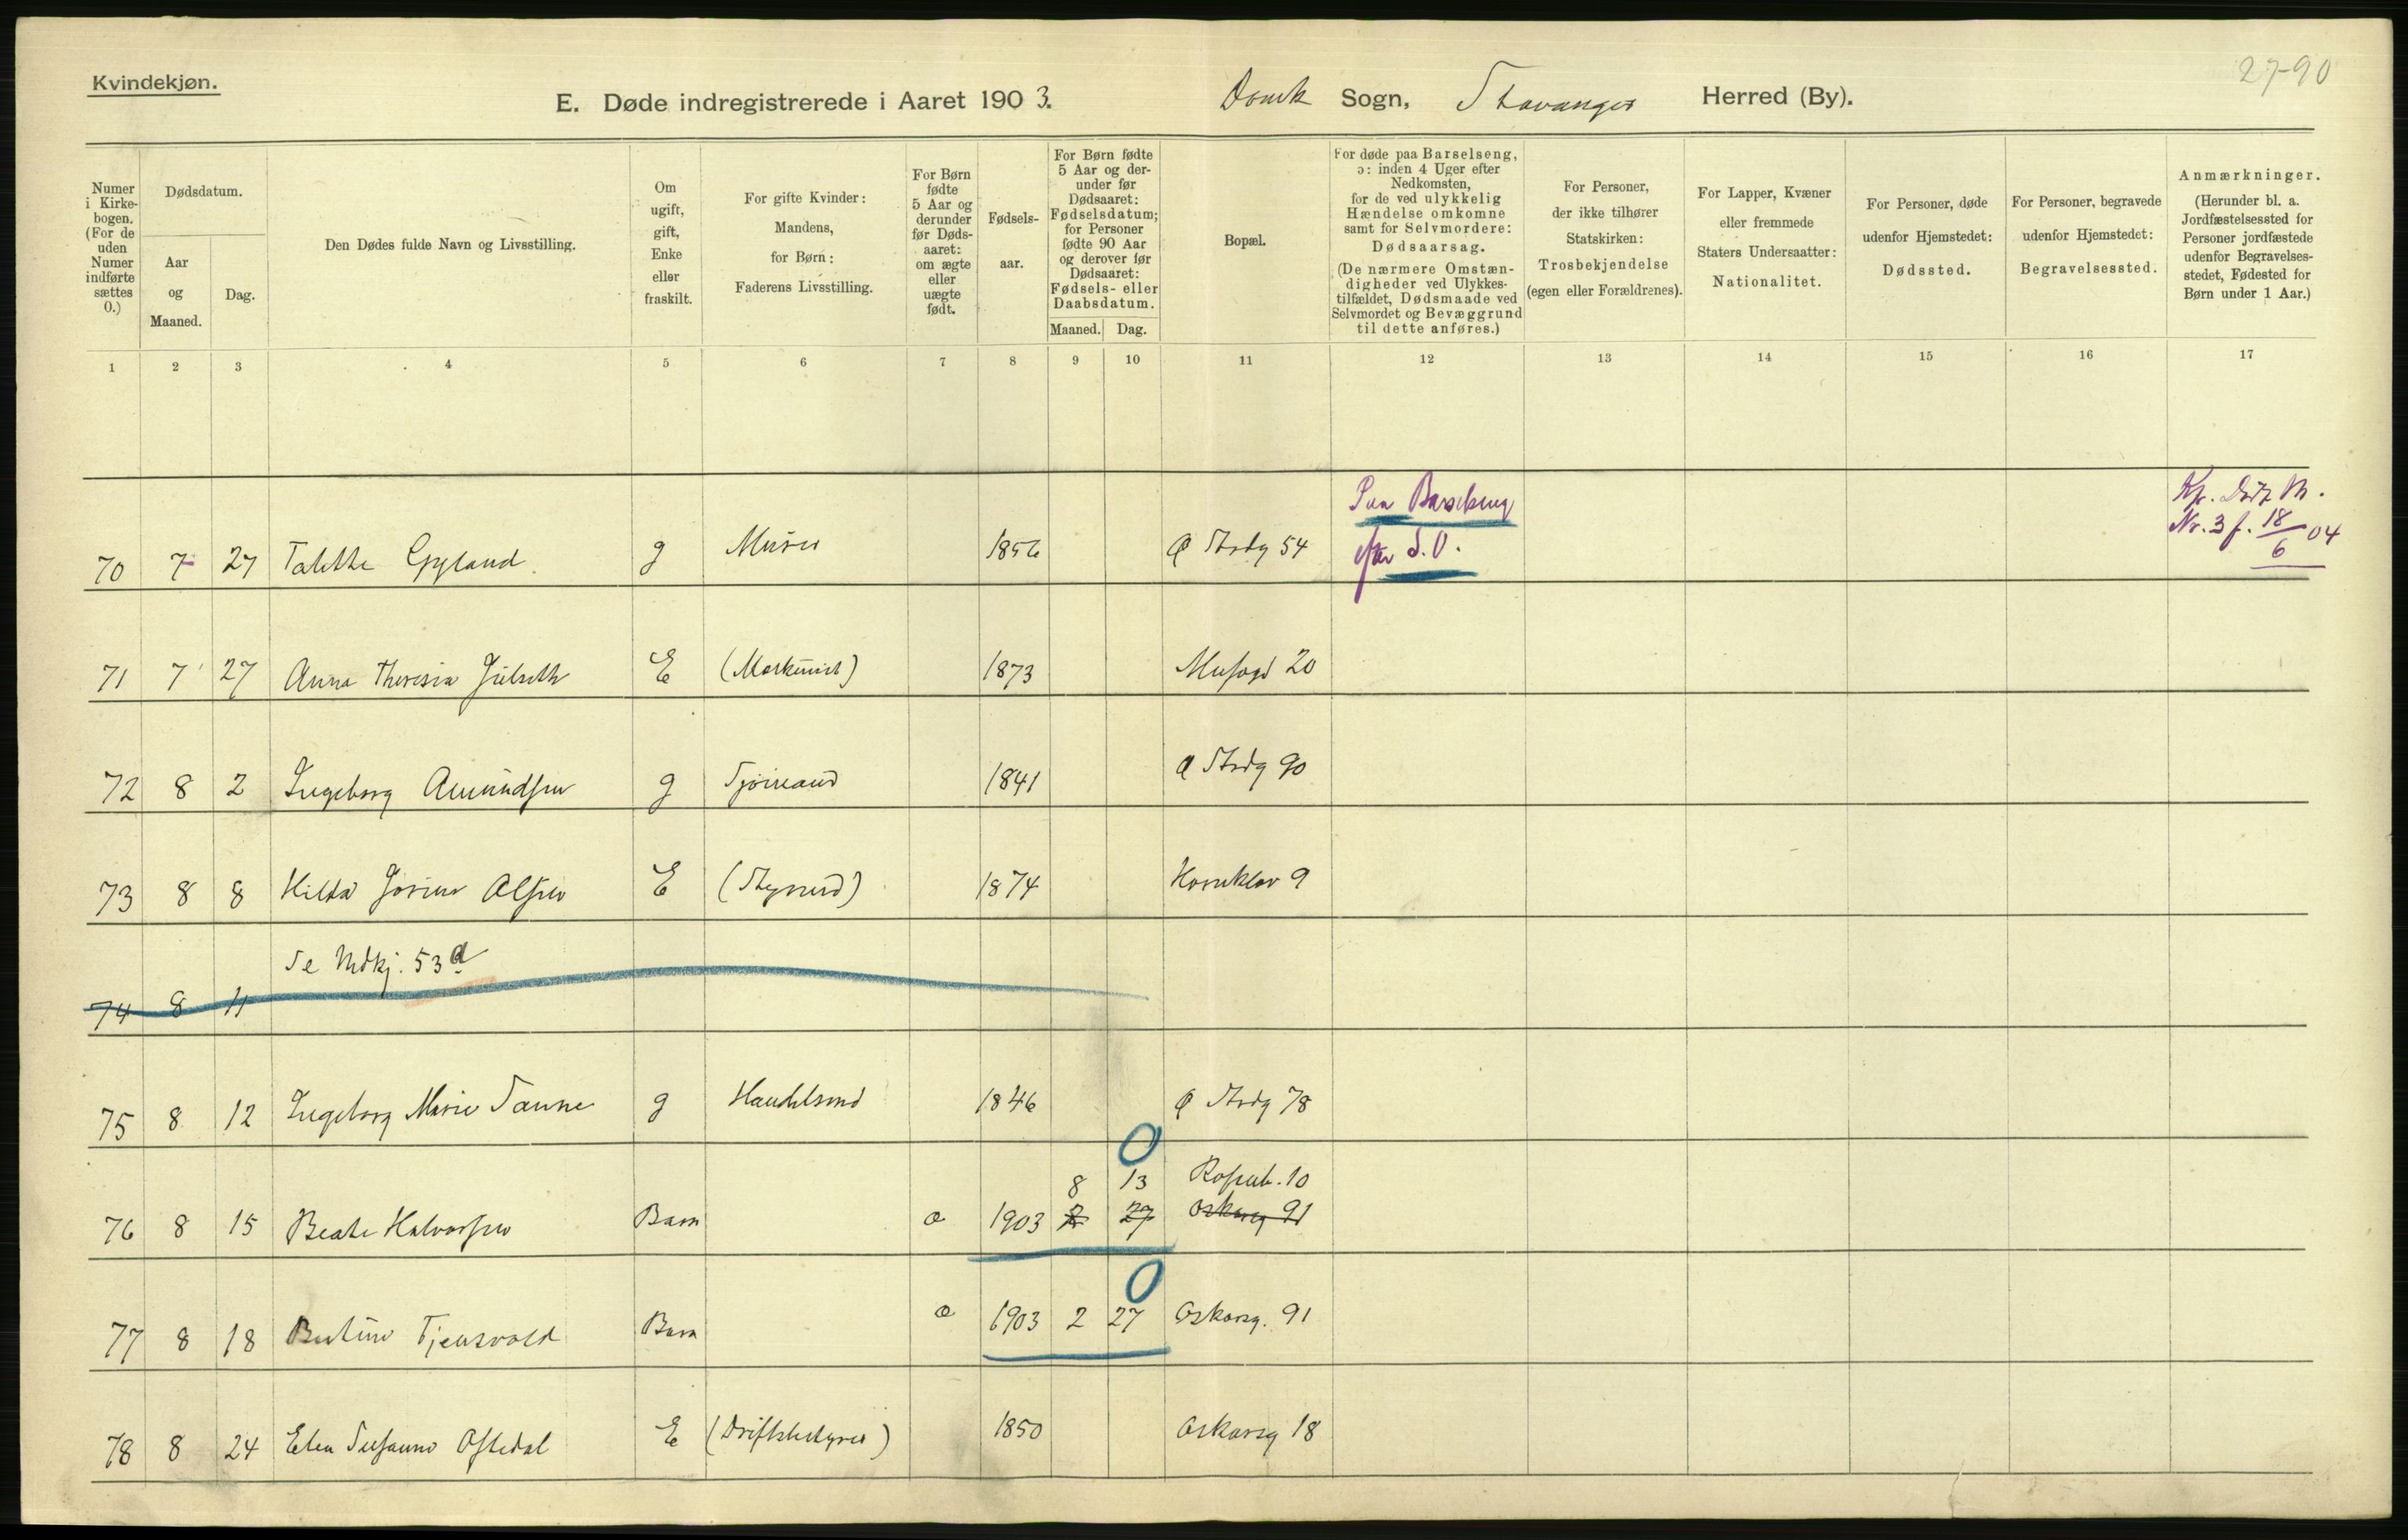 27-90
Kvindekjøn.
E. Døde indregistrerede i Aaret 1903. Domk Sogn, Stavanger Herred (By).
Numer i Kirkebogen. (For de uden Numer indførte sættes 0.)
Dødsdatum.
Aar og Maaned.
Dag.
Den Dødes fulde Navn og Livsstilling.
Om ugift, gift, Enke eller fraskilt.
For gifte Kvinder: Mandens, for Børn: Faderens Livsstilling.
For Børn fødte 5 Aar og derunder før Dødsaaret: om ægte eller uægte født.
Fødselsaar.
For Børn fødte 5 Aar og derunder før Dødsaaret: Fødselsdatum; for Personer fødte 90 Aar og derover før Dødsaaret: Fødsels- eller Daabsdatum.
Maaned. Dag.
Bopæl.
For døde paa Barselseng, ɔ: inden 4 Uger efter Nedkomsten, for de ved ulykkelig Hændelse omkomne samt for Selvmordere: Dødsaarsag. (De nærmere Omstændigheder ved Ulykkestilfældet, Dødsmaade ved Selvmordet og Bevæggrund til dette anføres.)
For Personer, der ikke tilhører Statskirken: Trosbekjendelse (egen eller Forældrenes).
For Lapper, Kvæner eller fremmede Staters Undersaatter: Nationalitet.
For Personer, døde udenfor Hjemstedet: Dødssted.
For Personer, begravede udenfor Hjemstedet: Begravelsessted.
Anmærkninger. (Herunder bl. a. Jordfæstelsessted for Personer jordfæstede udenfor Begravelsesstedet, Fødested for Børn under 1 Aar.)
1 2 3 4 5 6 7 8 9 10 11 12 13 14 15 16 17
Paa Barselseng
efter S.O.
Nr. 3 f. 18/6 04
70 7 27 Talette Gyland g Murer 1856 Ø Strdg 54
71 7 27 Anna Theresia E (Maskinist) 1873 20
72 8 2 Ingeborg Amundsen g Sjømand 1841 Ø Strdg 90
73 8 8 Hilda Josine Olsen E (Styrmd) 1874 Hornklov 9
Se Mdkj. 53a
74 8 11
75 8 12 Ingeborg Marie Sanne g Handelsmd 1846 Ø Strdg 78
8 13 Rosenb. 10
76 8 15 Beate Halvorsen Barn æ 1903 2 27 Oskarsg 91
77 8 18 Bertine Tjensvold Barn æ 1903 2 27 Oskarsg. 91
78 8 24 Elen Susanne Oftedal E (Driftsbestyrer) 1850 Oskarsg 18